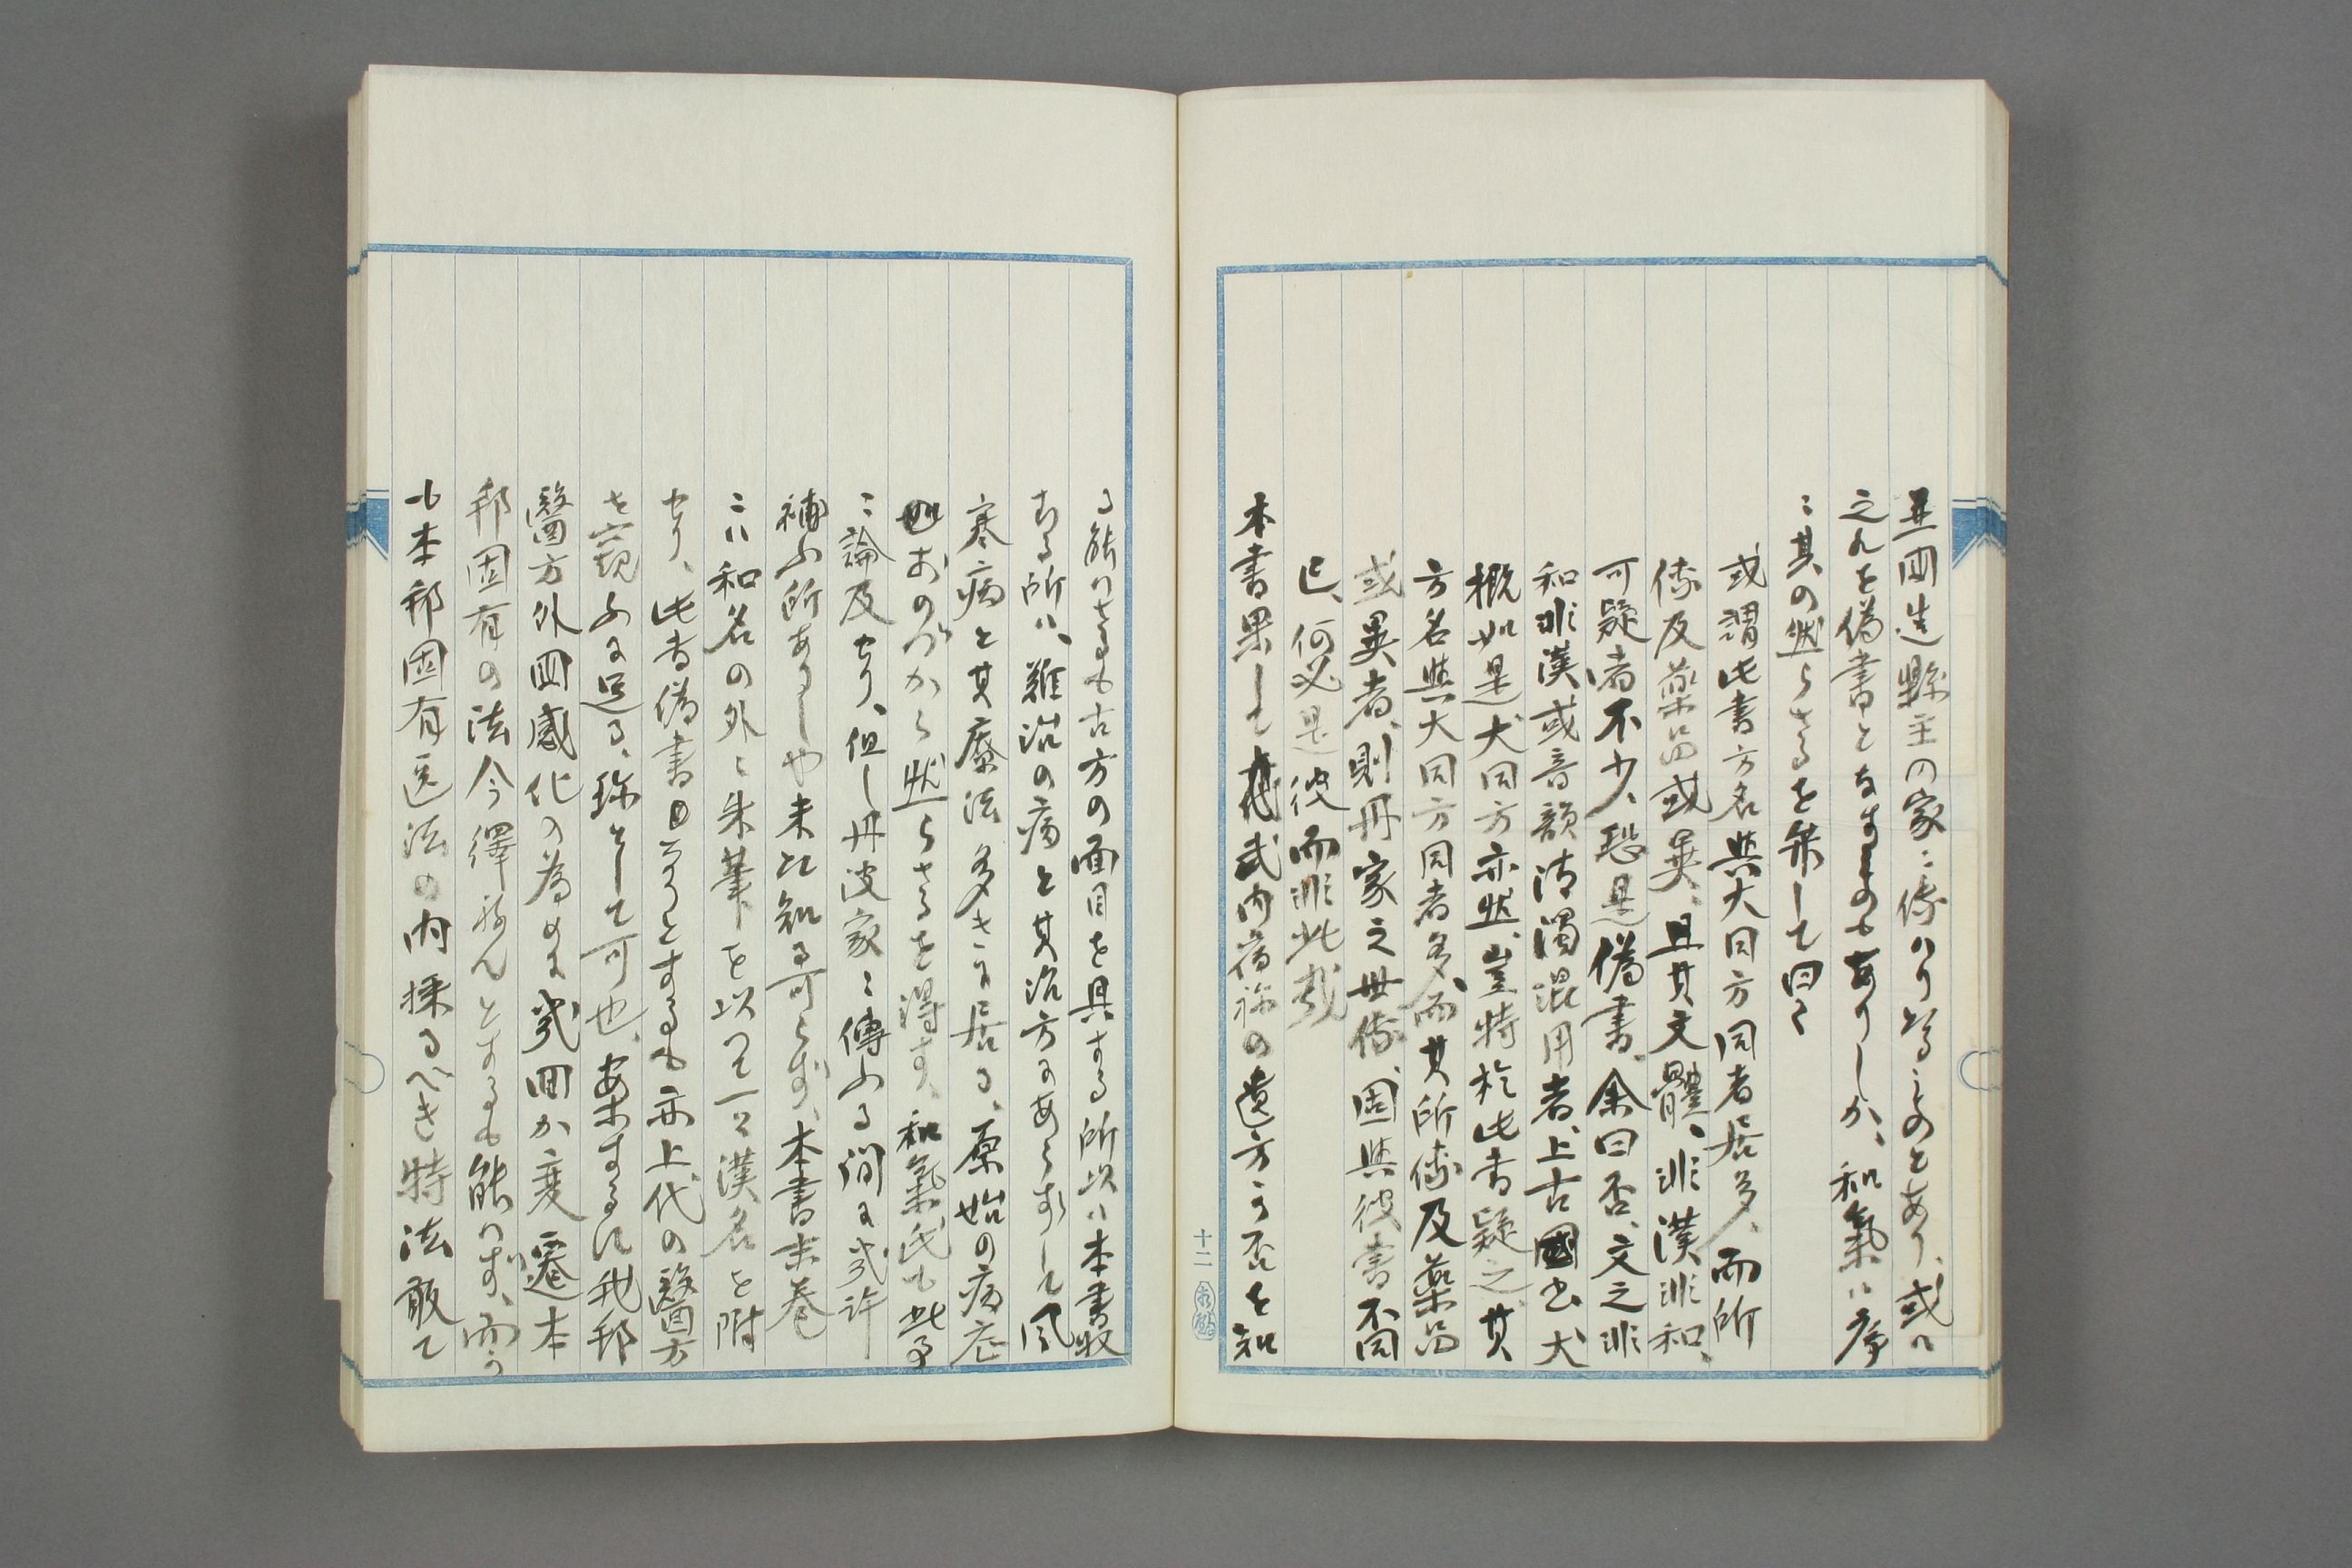 並国造縣主の家ニ係りり此ものとあり、或ハ
之れを偽書となすものもありしか、和氣ハ序
ニ其の然らさるを弁して曰く
或謂此書方名與大同方同者居多、而所
傳及藥品或異、且其文體、非漢非和、
可疑者不少、恐是偽書、余曰否、文之非
和非漢或音韻清濁混用者、上古國書大
概如是大同方亦然、豈特於此書疑之、其
方名與大同方同者多、而其所傳及藥品
或異者、則丹家之世傳、固與彼書不同
已、何必是彼而非此哉
本書果して武内宿祢の遺方か否を知
る能ハさるも古方の面目を具する所以ハ本書収
むる所ハ、難治の病と其治方にあらずして風
寒病と其療法多きに居る、原始の病症
おのづから然らさるを得す、和氣氏も此事
ニ論及せり、但し丹波家ニ傳ふる間に幾許
補ふ所ありしや未た知る可らず、本書末巻
ニハ和名の外ニ朱筆を以つて一々漢名を附
せり、此書偽書なりとするも亦上代の醫方
を窺ふに足る、珍として可也、按するに我邦
醫方外国感化の為めに幾回か変遷本
邦固有の法今繹ねんとするも能ハず、而か
も本邦固有医法の内採るべき特法敢て
十二